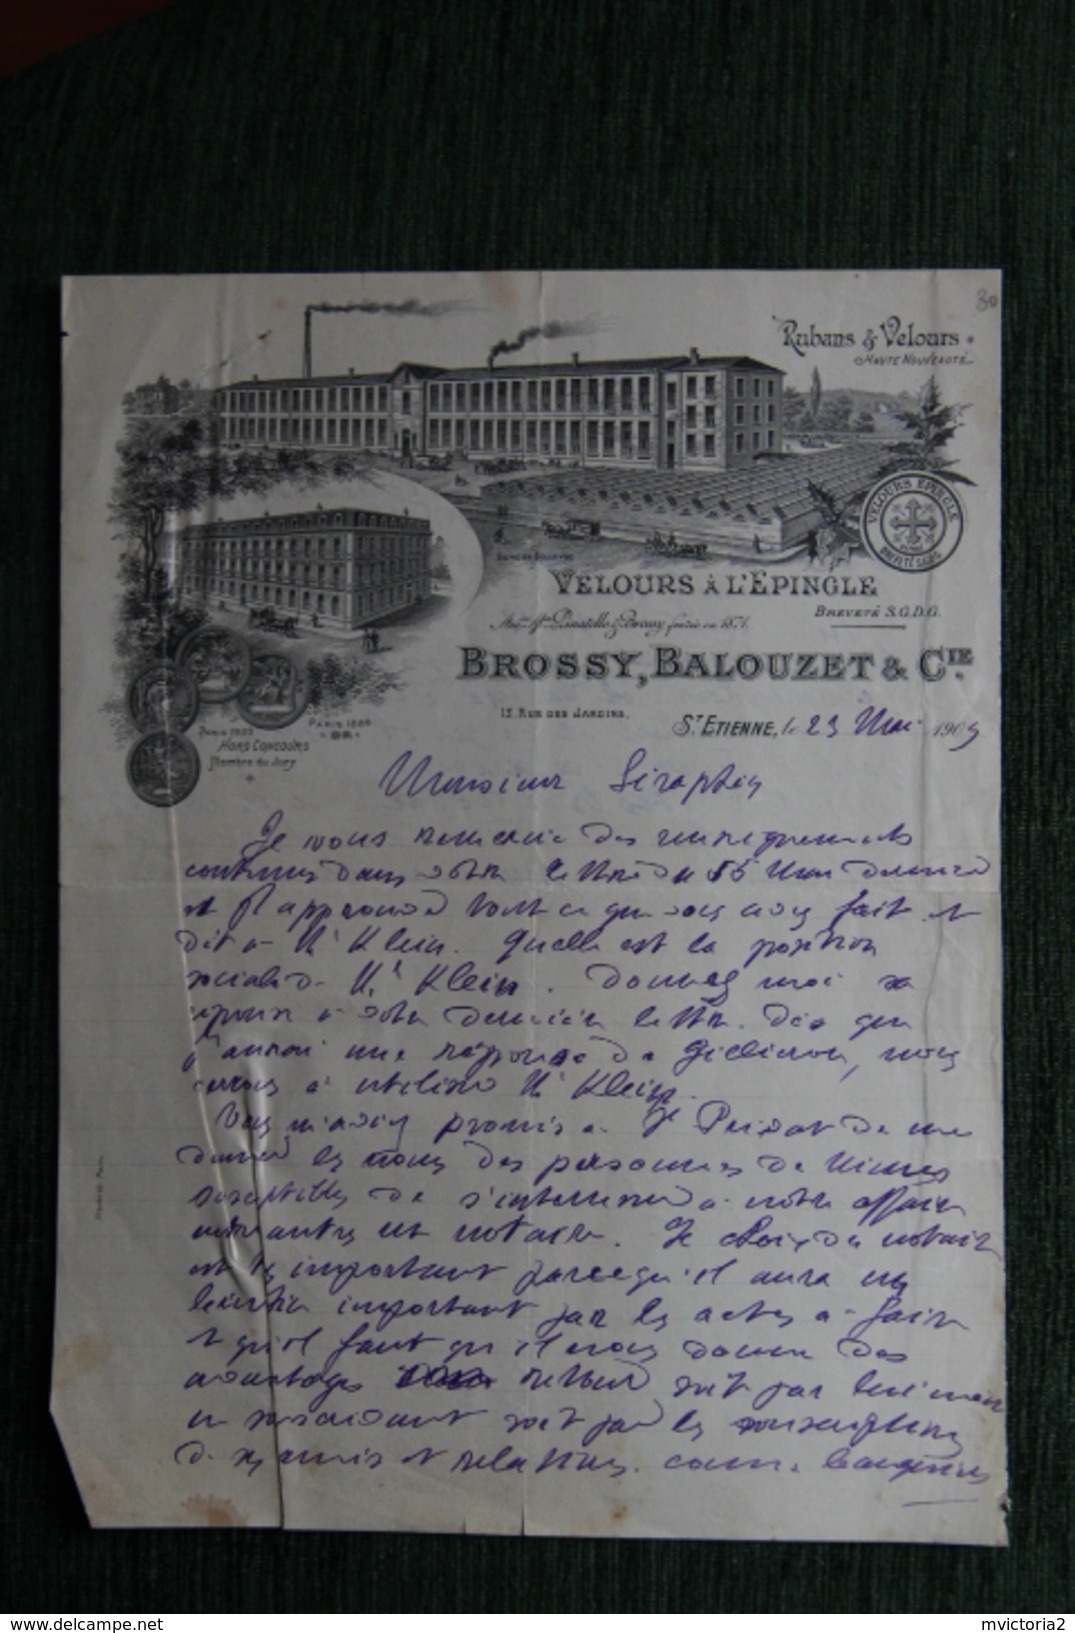 30
Rubans & Velours
HAUTE NOUVEAUTÉ
VELOURS ÉPINGLÉ
BREVETÉ S.G.D.G.
USINE DE BELLEVUE
VELOURS À L'ÉPINGLE
BREVETÉ S.G.D.G.
fondée en 1871.
BROSSY, BALOUZET & CIE
15, RUE DES JARDINS,
PARIS 1889
OR
PARIS 1900
HORS CONCOURS
Membre du Jury
ST ETIENNE, le 23 Mai 1905
Monsieur Séraphin
Je vous remercie des renseignements
contenus dans votre lettre du 15 Mai dernier
et j'approuve tout ce que vous avez fait et
dit à Mr Klein. Quelle est la position
sociale de Mr Klein. Donnez moi sa
réponse à votre dernière lettre. Dès que
j'aurai une réponse de nous
à utiliser Mr Klein.
Vous m'aviez promis à Je de me
donner les noms des personnes de Nimes
susceptibles de s'intéresser à notre affaire
entre autres un notaire. Le choix du notaire
est très important parce qu'il aura un
bénéfice important par les actes à faire
et qu'il faut qu'il nous donne des
avantages soit par lui même
en souscrivant soit par les souscriptions
de ses amis et relations comme banquiers
mvictoria2
www.delcampe.net